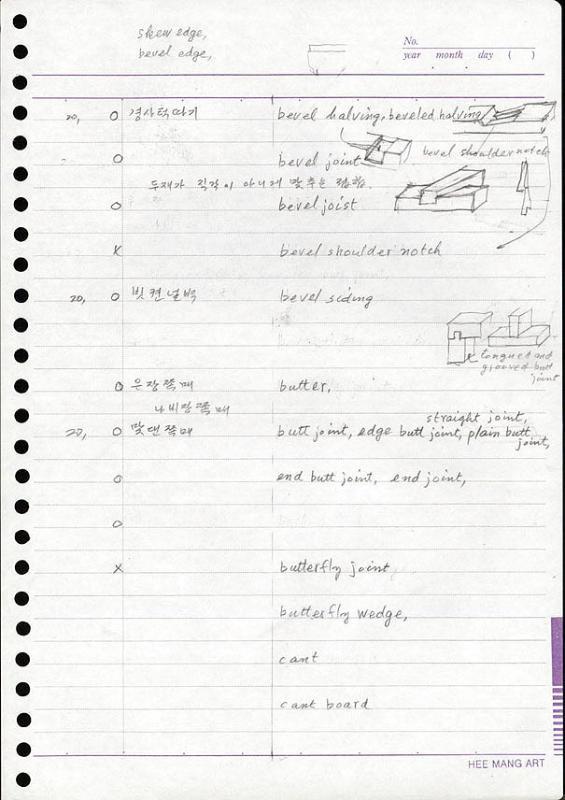 skew edge,
bevel edge,
No.
year month day ( )
20, o 경사턱따기 bevel halving, beveled halving
o bevel joint bevel shoulder notch
두재가 직각이 아니게 맞추는 접합.
o bevel joist
x bevel shoulder notch
20, o 빗켠널벽 bevel siding
tongued and
grooved butt
joint
o 은장쪽매 butter,
나비장쪽매
straight joint,
20, o 맞댄쪽매 butt joint, edge butt joint, plain butt
joint,
o end butt joint, end joint,
o
x butterfly joint
butterfly wedge,
cant
cant board
HEE MANG ART